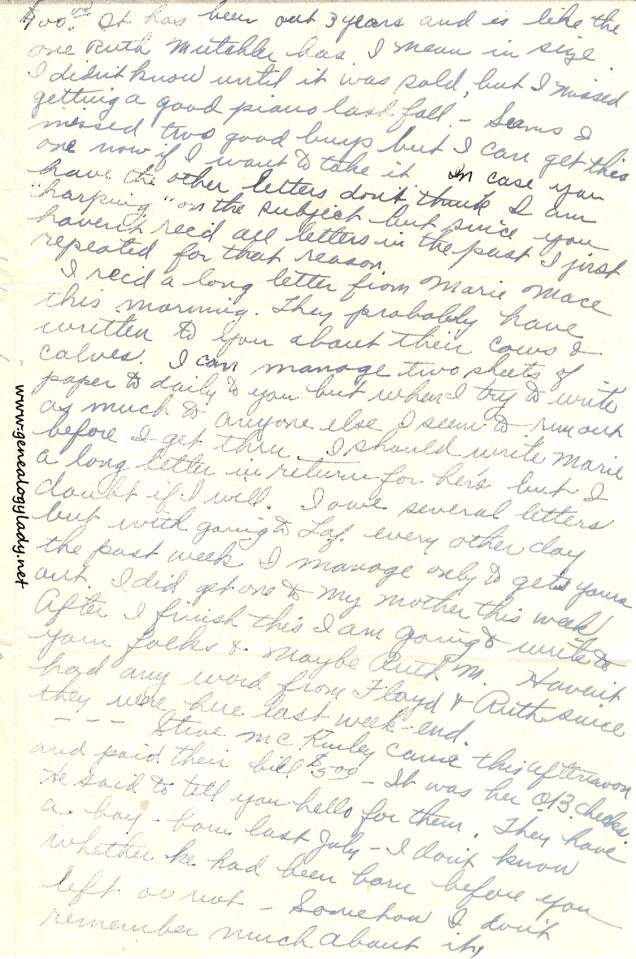 400.00. It has been out 3 years and is like the
one Ruth Mutchler has, I mean in size.
I didn't know until it was sold, but I missed
getting a good piano last fall - Seems I
missed two good buys but I can get this
one now if I want to take it. In case you
have the other letters don't think I am
"harping" on the subject but since you
haven't rec'd all letters in the past I just
repeated for that reason.
I rec'd a long letter from Marie Mace
this morning. They probably have
written to you about their cows &
calves. I can manage two sheets of
paper to daily to you but when I try to write
as much to anyone else I seem to run out
before I get thru. I should write Marie
a long letter in return for hers but I
doubt if I will. I owe several letters
but with going to Laf. every other day
the past week I manage only to get yours
out. I did get one to my mother this week!
After I finish this I am going to write to
your folks & maybe Ruth M. Haven't
had any word from Floyd & Ruth since
they were here last week-end.
- - - Steve McKinley came this afternoon
and paid their bill $5.00 - It was her OB checks.
He said to tell you hello for them. They have
a boy - born last July - I don't know
whether he had been born before you
left or not - Somehow I don't
remember much about it,
www.genealogylady.net